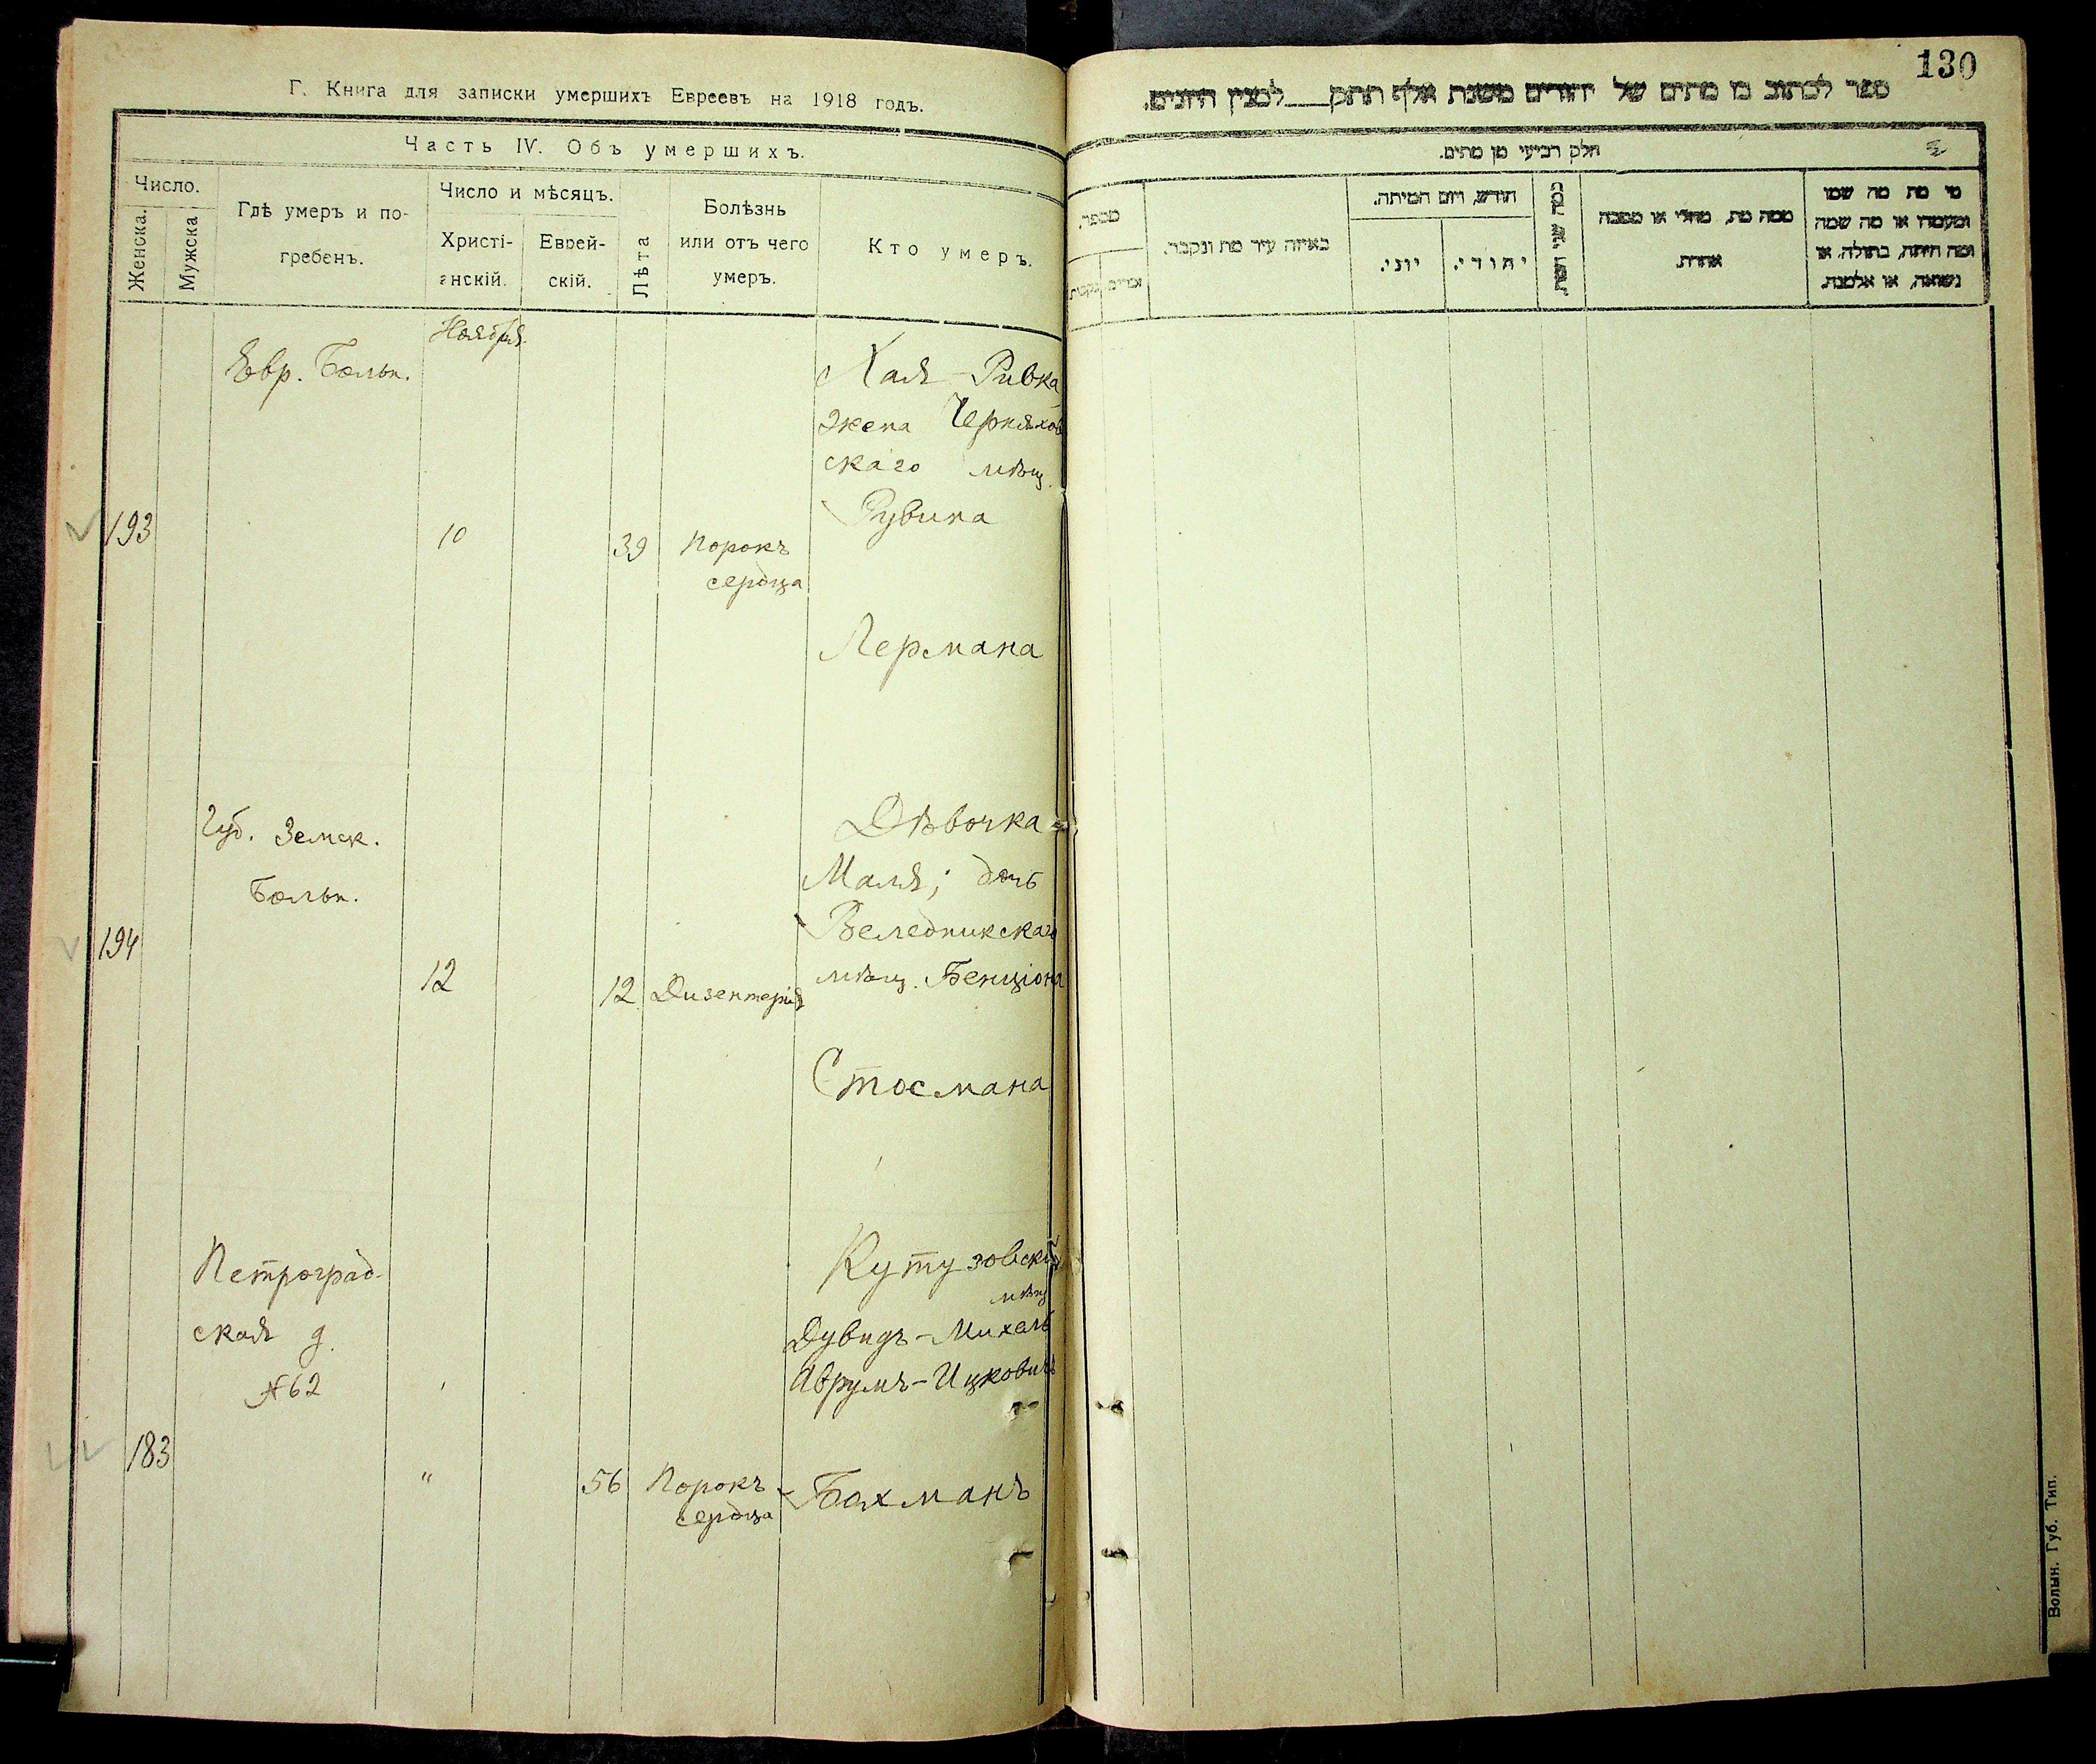 Г. Книга для записки умершихъ Евреевъ на 1918 годъ.
Часть IV. Объ умершихъ.
Число.
Женска.
Мужска
Гдѣ умеръ и по-
гребенъ.
Число и мѣсяцъ.
Христі-
анскій.
Еврей-
скій.
Лѣта
Болѣзнь
или отъ чего
умеръ.
Кто умеръ.
193
Евр. Больн.
Ноября
10
39
Порокъ
сердца
Хая-Ривка
жена Черняхов
скаго мѣщ.
Рувина
Лермана
194
Губ. Земск.
Больн.
12
12
Дизентерія
Дѣвочка
Маля; дочь
Веледникскаго
мѣщ. Бенціона
Стосмана
183
Петроград-
ская д.
№62
"
56
Порокъ
сердца
Кутузовскій
мѣщ
Дувидъ-Михель
Аврумъ-Ицковичъ
Бахманъ
130
ספר לכתוב מן מתים של יהודים משנת אלף תתק למנין היונים.
חלק רביעי מן מתים.
מספר.
זכרים
נקבות
באיזה עיר מת ונקבר.
חודש, ויום המיתה.
יוני.
יהודי.
כמה שני המת
ממה מת, מחלי או מסבה
אחרת.
מי מת מה שמו
ומעמדו או מה שמה
ומה היתה, בתולה, או
נשואה, או אלמנה.
Волын. Губ. Тип.